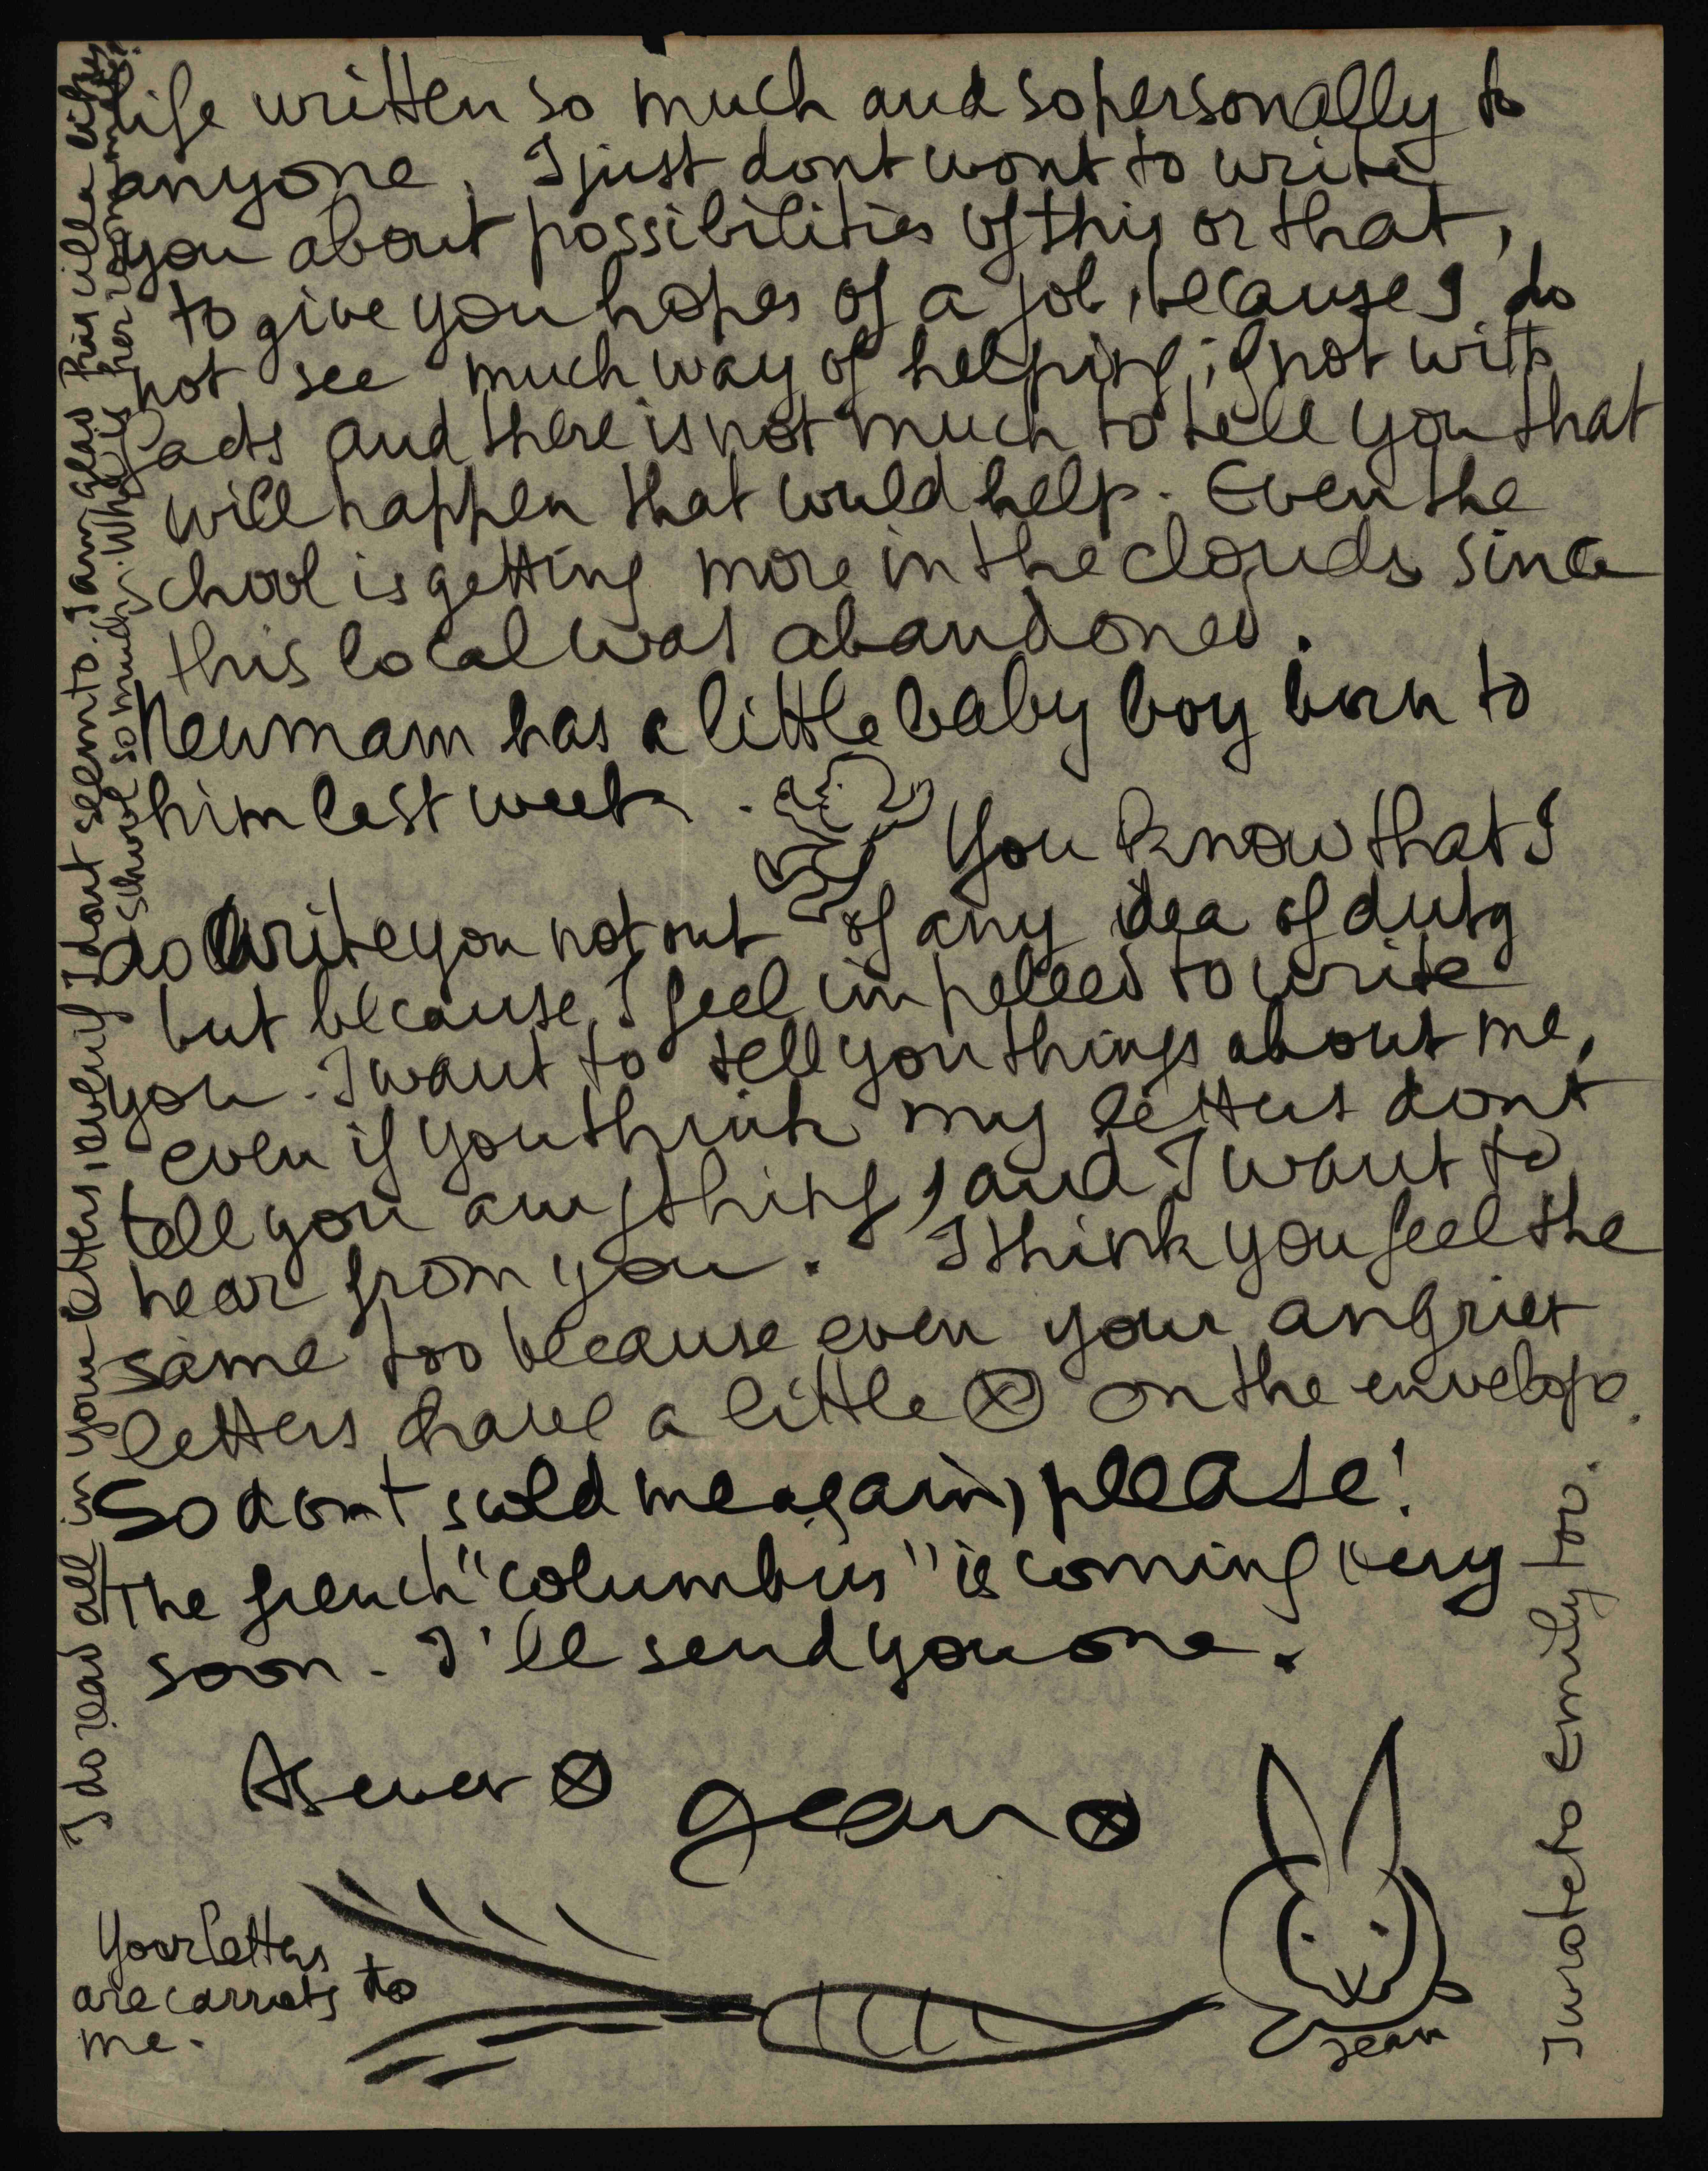 life written so much and so personally to
anyone. I just dont wont to write
you about possibilities of this or that,
to give you hopes of a job, because I do
not see much way of helping; if not with
facts and there is not much to tell you that
will happen that would help. Even the
school is getting more in the clouds since
this local was abandoned.
Neumann has a little baby boy born to
him last week.
You know that I
do write you not out of any idea of duty
but because I feel impelled to write
you. I want to tell you things about me,
even if you think my letters dont
tell you anything, and I want to
hear from you. I think you feel the
same too because even your angriest
letters have a little ⊗ on the envelope.
So dont scold me again, please!
The french "columbus" is coming very
soon. I'll send you one.
As ever ⊗ Jean ⊗
Your letters
are carrots to
me.
Jean
I wrote to Emily too.
I do read all in your letters, even if I dont seem to. I am glad likes
school so much. What is her